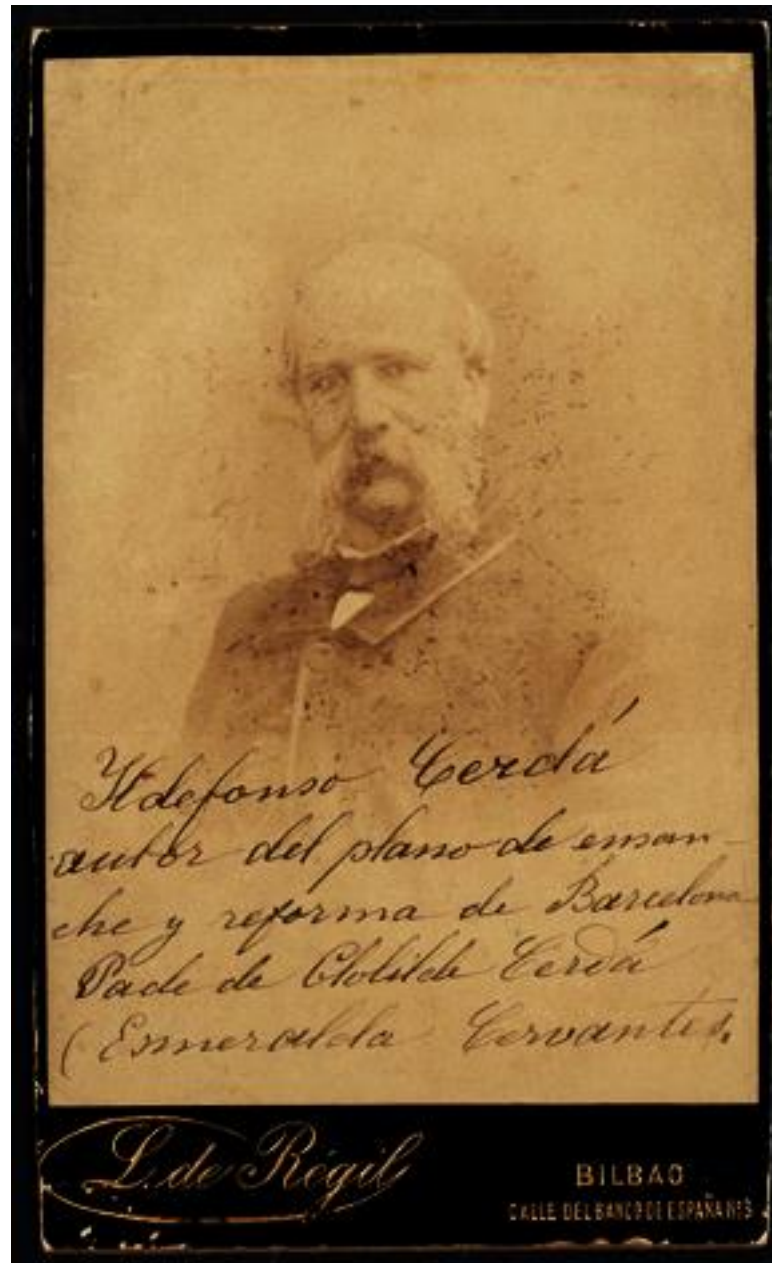 Ildefonso Cerdá
autor del plano de ensan-
che y reforma de Barcelona
Pade de Clotilde Cerdá
(Esmeralda Cervantes,
L. de Régil
BILBAO
CALLE DEL BANCO DE ESPAÑA Nº3